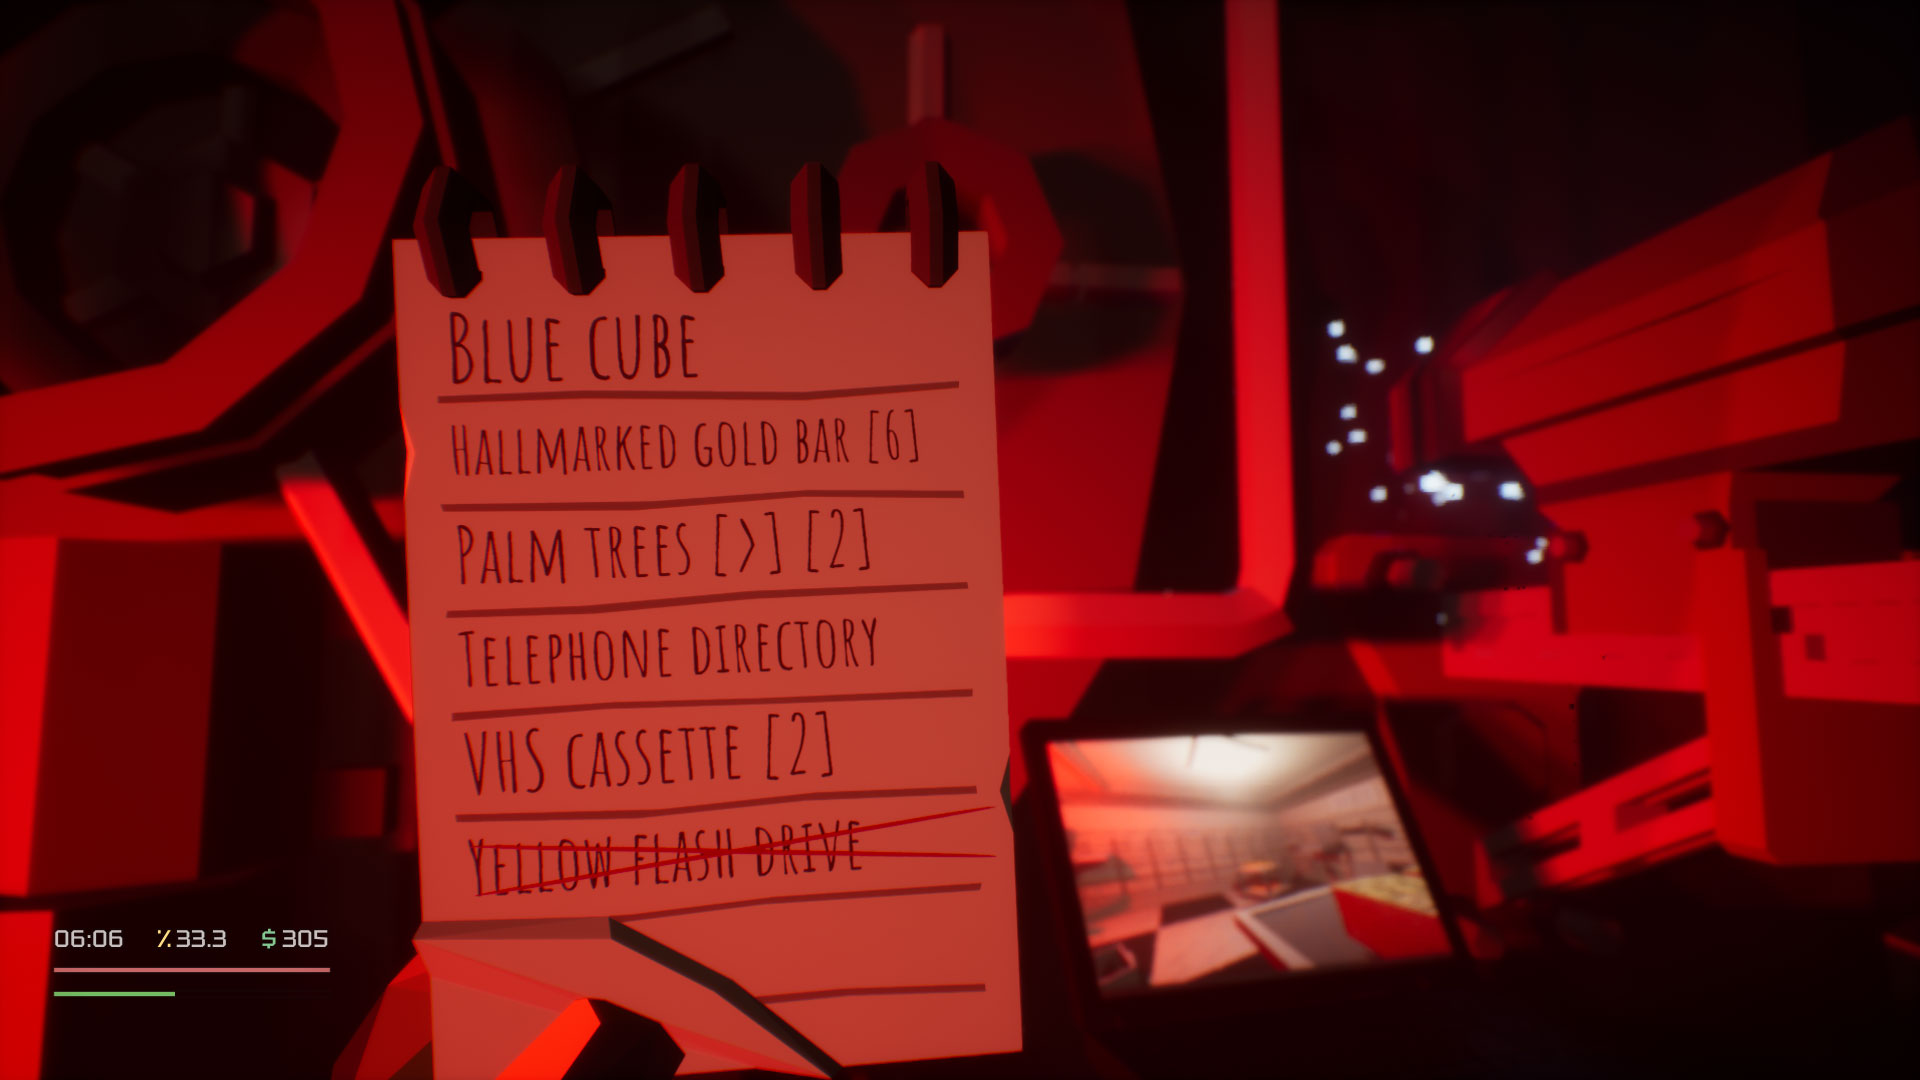 Blue cube
Hallmarked gold bar [6]
Palm trees [>] [2]
Telephone directory
VHS cassette [2]
Yellow flash drive
06:06 ٪33.3 $305